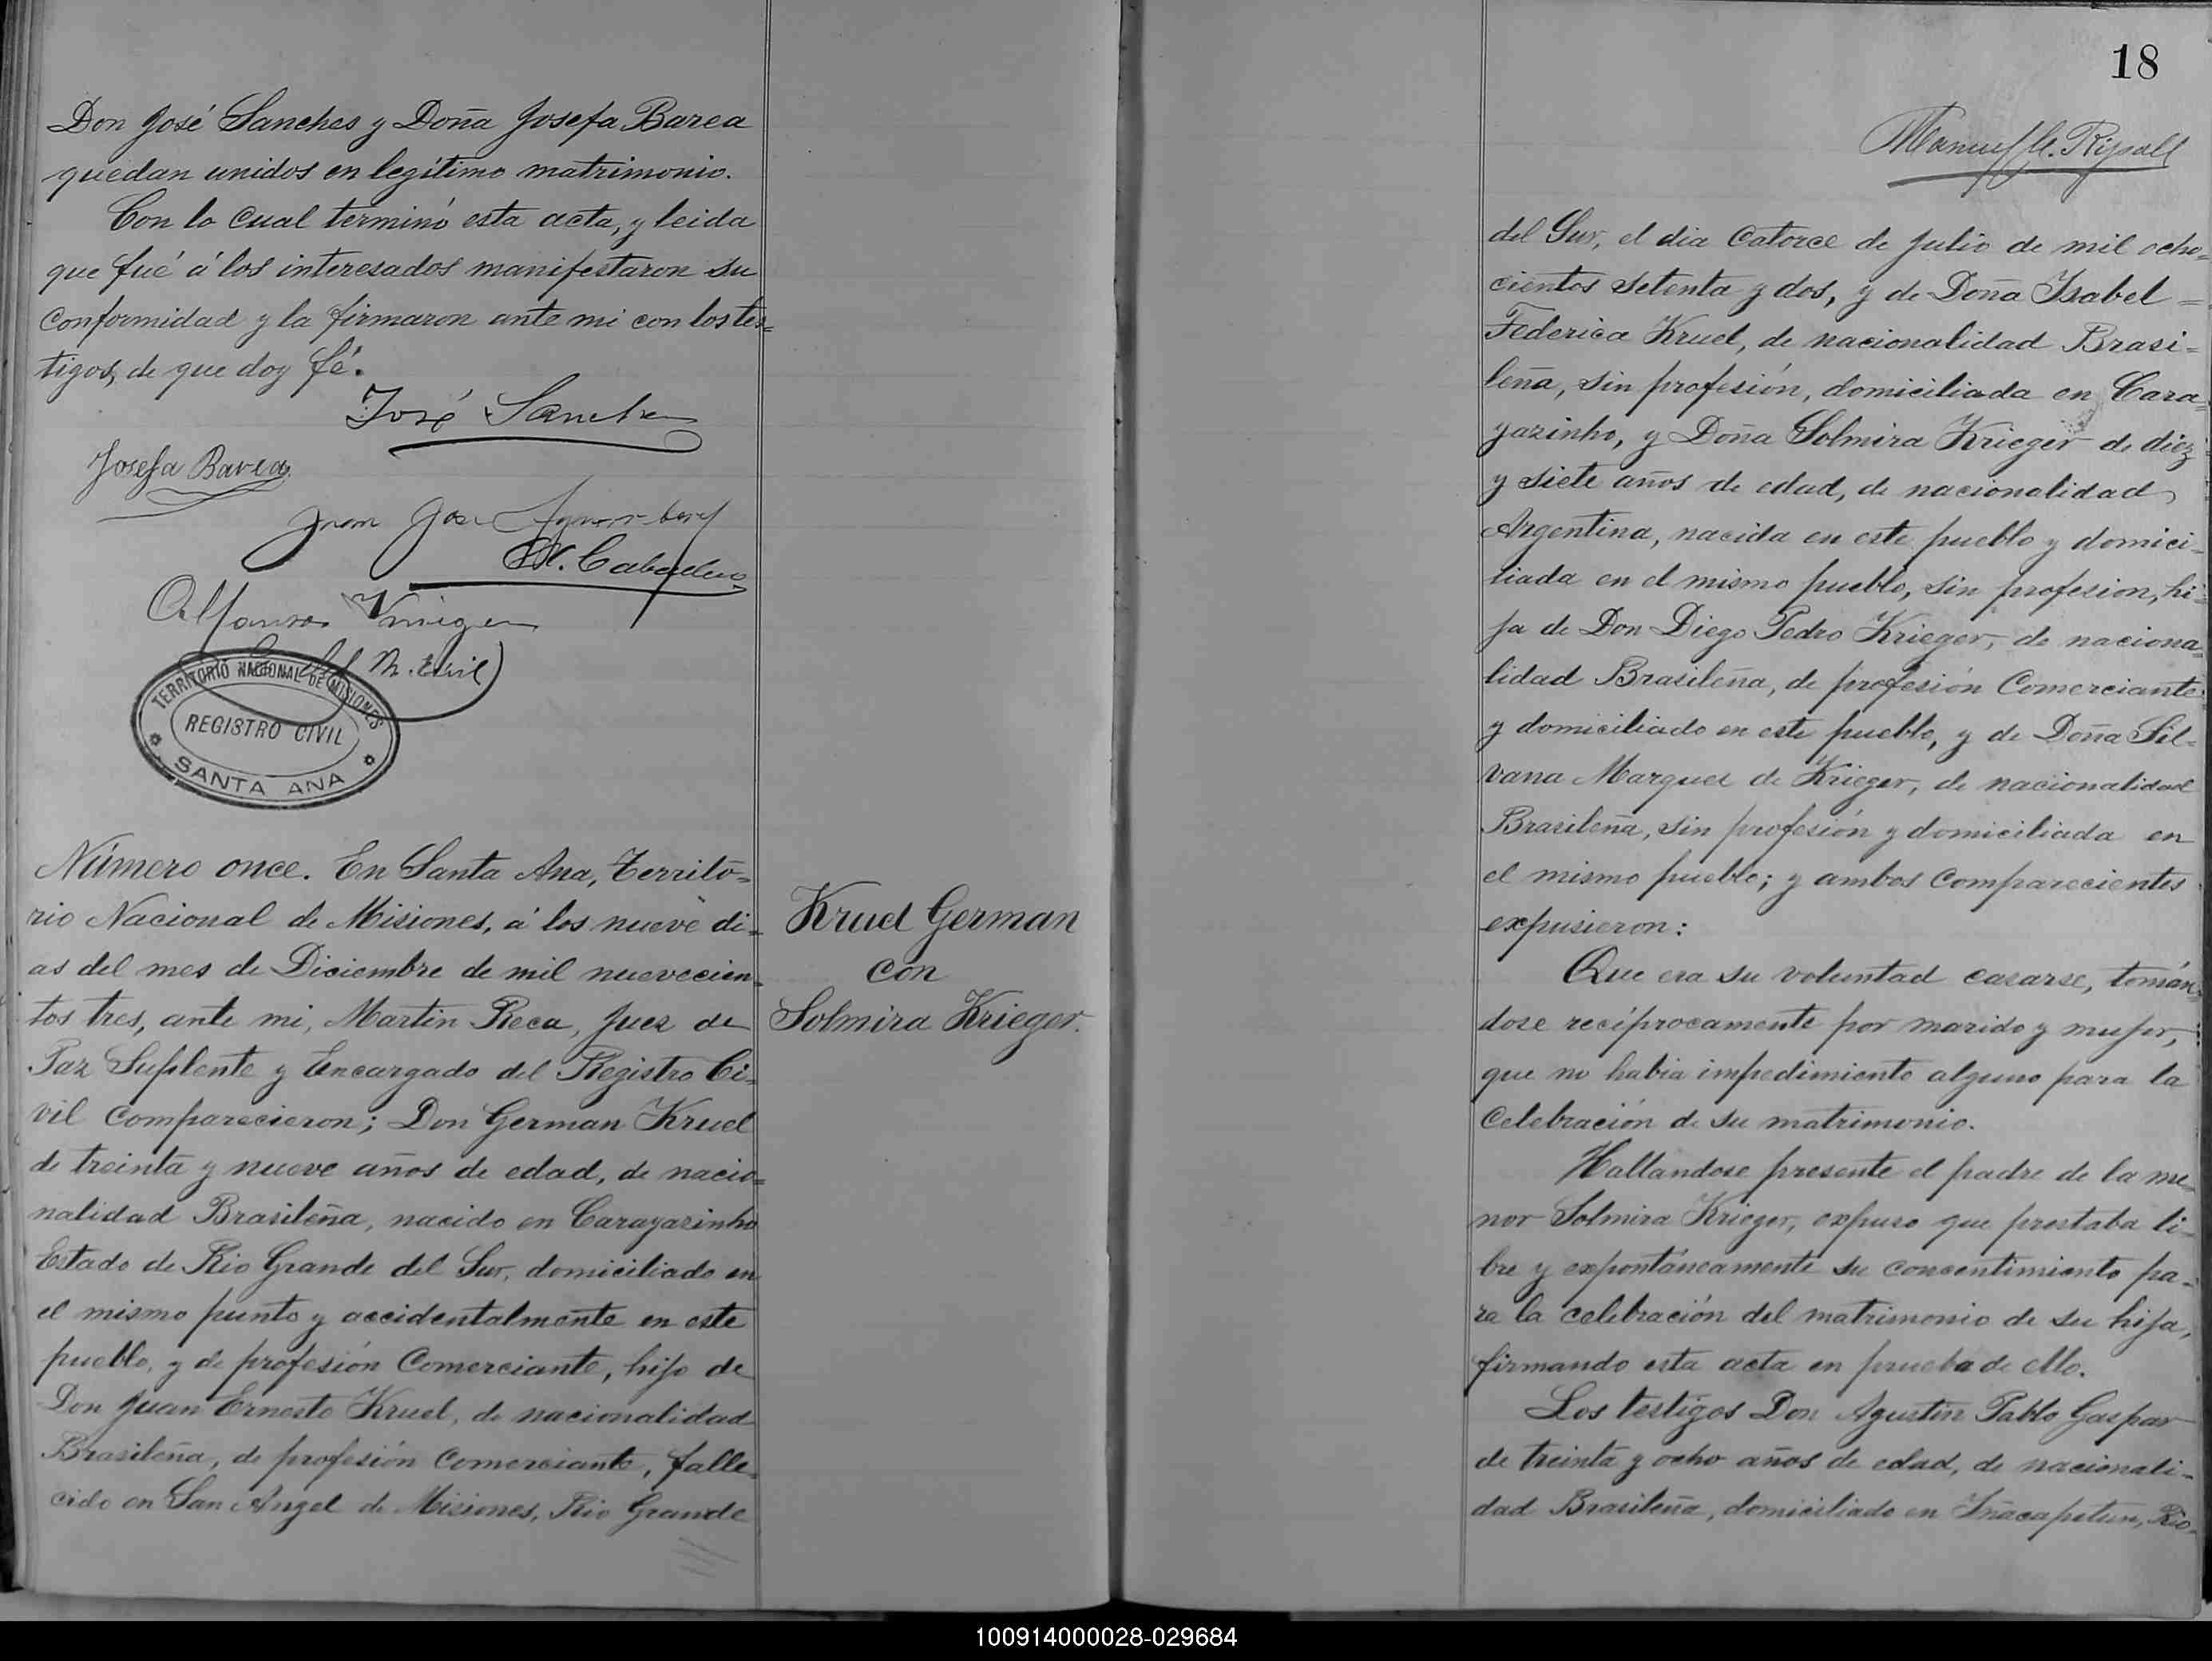 Don José Sanches y Doña Josefa Barea
quedan unidos en legítimo matrimonio.
Con lo cual terminó esta acta, y leida
que fué á los interesados manifestaron su
conformidad y la firmaron ante mi con los tes=
tigos, de que doy fé.
José Sanche
Josefa Barea
Juan Jose
M. Caballero
Alfonso
TERRITORIO NACIONAL DE MISIONES
REGISTRO CIVIL
SANTA ANA
Número once. En Santa Ana, Territo=
rio Nacional de Misiones, á los nueve di=
as del mes de Diciembre de mil nuevecien=
tos tres, ante mi, Martin Reca, Juez de
Paz Suplente y Encargado del Registro Ci=
vil comparecieron; Don German Kruel
de treinta y nueve años de edad, de nacio=
nalidad Brasileña, nacido en Carayazinho
Estado de Rio Grande del Sur, domiciliado en
el mismo punto y accidentalmente en este
pueblo, y de profesión Comerciante, hijo de
Don Juan Ernesto Kruel, de nacionalidad
Brasileña, de profesión Comerciante, falle=
cido en San Angel de Misiones, Rio Grande
Kruel German
con
Solmira Krieger.
18
Manuel C. Ripoll
del Sur, el dia catorce de Julio de mil ocho=
cientos setenta y dos, y de Doña Isabel =
Federica Kruel, de nacionalidad Brasi=
leña, sin profesión, domiciliada en Cara=
yazinho, y Doña Solmira Krieger de diez
y siete años de edad, de nacionalidad
Argentina, nacida en este pueblo y domici=
liada en el mismo pueblo, sin profesion, hi=
ja de Don Diego Pedro Krieger, de naciona=
lidad Brasileña, de profesión Comerciante
y domiciliado en este pueblo, y de Doña Sil=
vana Marques de Krieger, de nacionalidad
Brasileña, sin profesión y domiciliada en
el mismo pueblo; y ambos comparecientes
expusieron:
Que era su voluntad casarse, tomán=
dose recíprocamente por marido y mujer,
que no habia impedimiento alguno para la
celebración de su matrimonio.
Hallandose presente el padre de la me=
nor Solmira Krieger, expuso que prestaba li=
bre y expontáneamente su concentimiento pa=
ra la celebración del matrimonio de su hija,
firmando esta acta en prueba de ello.
Los testigos Don Agustin Pablo Gaspar
de treinta y ocho años de edad, de nacionali=
dad Brasileña, domiciliado en Iñacapetum, Rio
100914000028-029684